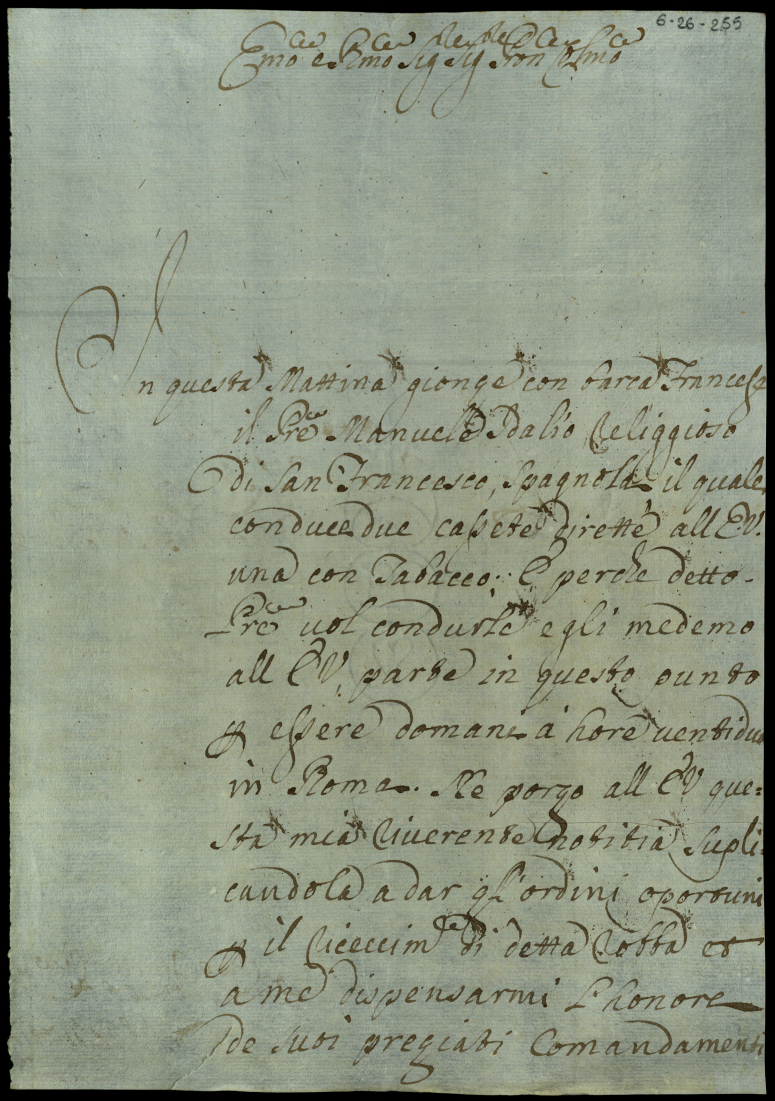 6-26-255
Emo e Rmo Sig.re Sig.re Pron Colmo
In questa Mattina gionge con barca Francesa
il Pre Manuele Idalio Religgioso
di San Francesco, Spagnola, il quale
conduce due cassete dirette all E.V.
una con Tabacco. E perche detto
Pre vol condurle egli medemo
all E V, parte in questo punto
p essere domani à hore ventidue
in Roma. Ne porgo all E V que=
sta mia riverente notitia supli=
candola a dar gl'ordini oportuni
p il riceccim.to di detta Robba et
a me dispensarmi l'honore
de suoi pregiati Comandamenti